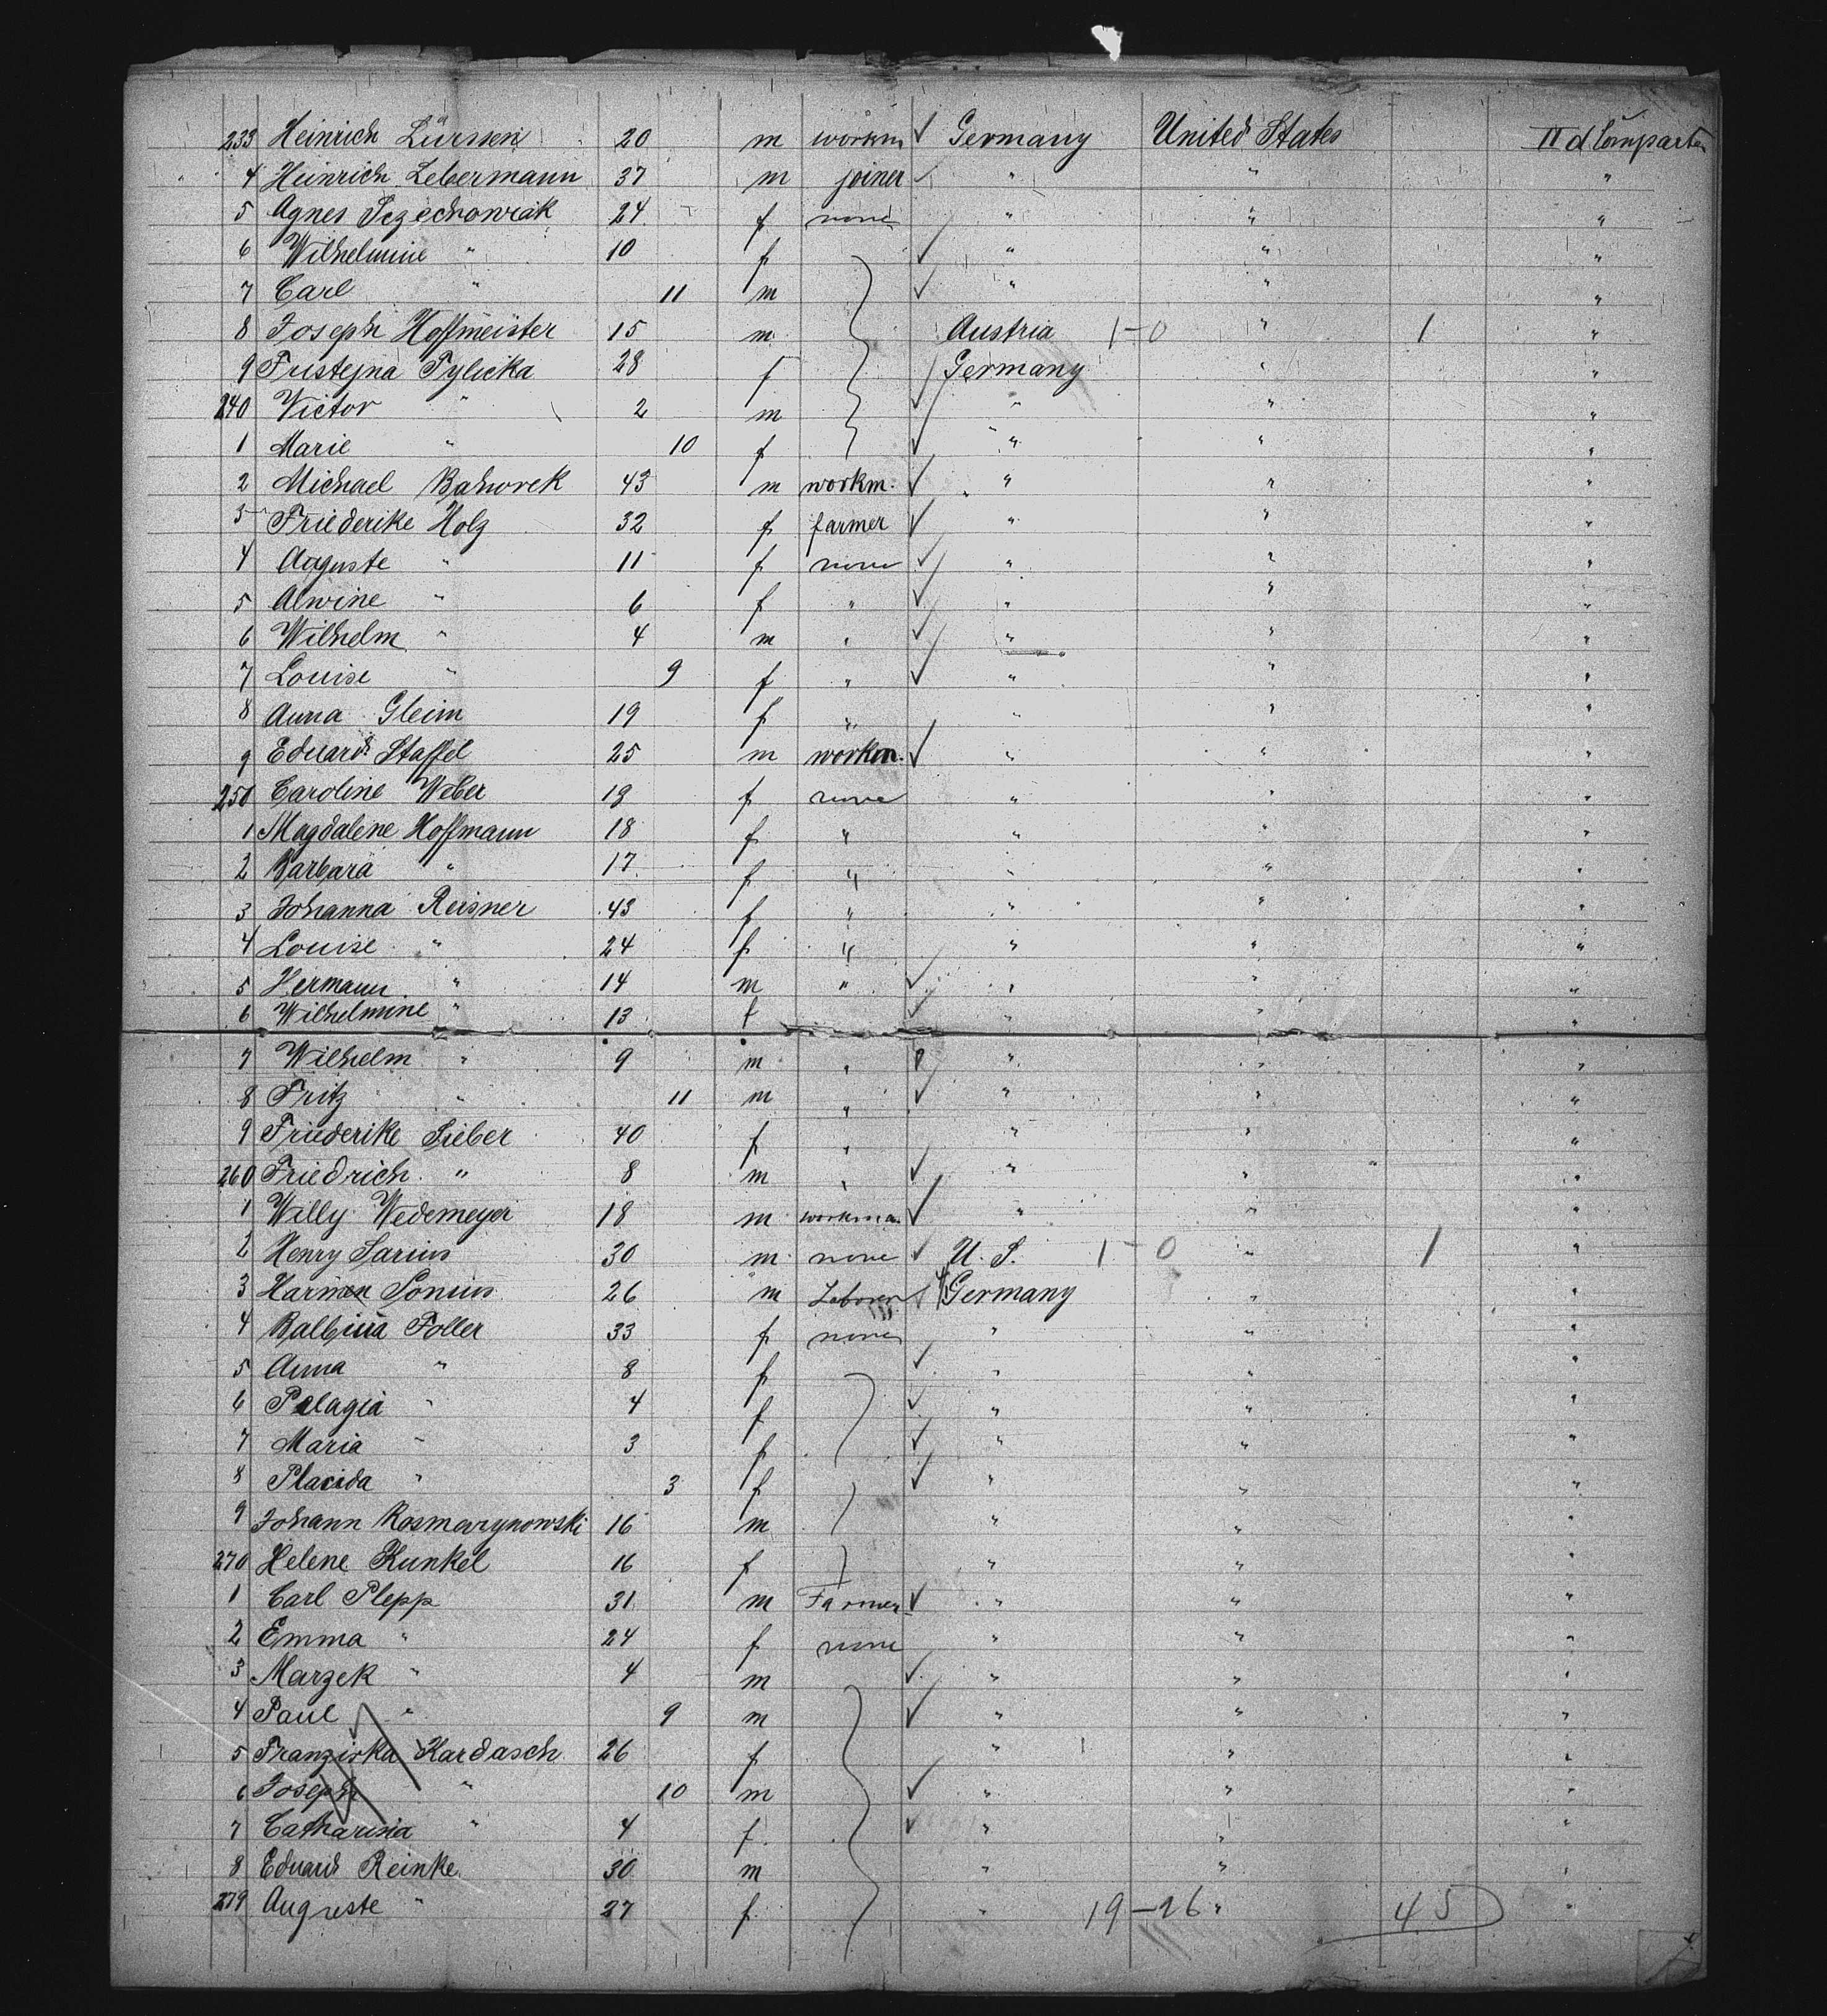 233 Heinrich Lürssen 20 m workm ✓ Germany United States II d Compart
4 Heinrich Lebermann 37 m joiner ✓ " " "
5 Agnes Sczechowiak 24 f none " " "
6 Wilhelmine " 10 f ✓ " " "
7 Carl " 11 m ✓ " " "
8 Joseph Hoffmeister 15 m Austria 1-0 " 1 "
9 Tylicka 28 f Germany " "
240 Victor " 2 m ✓ " " "
1 Marie " 10 f ✓ " " "
2 Michael Bahorek 43 m workm. ✓ " " "
3 Friederike Holz 32 f farmer ✓ " " "
4 Auguste " 11 f none ✓ " " "
5 Alwine " 6 f " ✓ " " "
6 Wilhelm " 4 m " ✓ " " "
7 Louise " 9 f " ✓ " " "
8 Anna Gleim 19 f " " " "
9 Eduard Staffel 25 m workm. ✓ " " "
250 Caroline Weber 19 f none " " "
1 Magdalene Hoffmann 18 f " " " "
2 Barbara " 17 f " " " "
3 Johanna Reisner 43 f " " " "
4 Louise " 24 f " " " "
5 Hermann " 14 m " ✓ " " "
6 Wilhelmine " 13 f ✓ " " "
7 Wilhelm " 9 m " " " "
8 Fritz " 11 m " ✓ " " "
9 Friederike Sieber 40 f " " " "
260 Friedrich " 8 m " ✓ " " "
1 Willy Wedemeyer 18 m workman ✓ " " "
2 Henry Sarius 30 m none ✓ U. S. 1-0 " 1 "
3 Harmen Sonius 26 m Laborer ✓ Germany " "
4 Balbina Foller 33 f none " " "
5 Anna " 8 f ✓ " " "
6 Pelagia " 4 f ✓ " " "
7 Maria " 3 f ✓ " " "
8 Placida " 3 f ✓ " " "
9 Johann Rosmarynowski 16 m " " "
270 Helene Kunkel 16 f " " "
1 Carl Plepp 31 m Farmer ✓ " " "
2 Emma " 24 f none " " "
3 Marzek " 4 m ✓ " " "
4 Paul " 9 m ✓ " " "
5 Franziska Kardasch 26 f " " "
6 Joseph " 10 m ✓ " " "
7 Catharina " 4 f ✓ " " "
8 Eduard Reinke 30 m " " "
279 Auguste " 27 f " 19-26 " 45 "